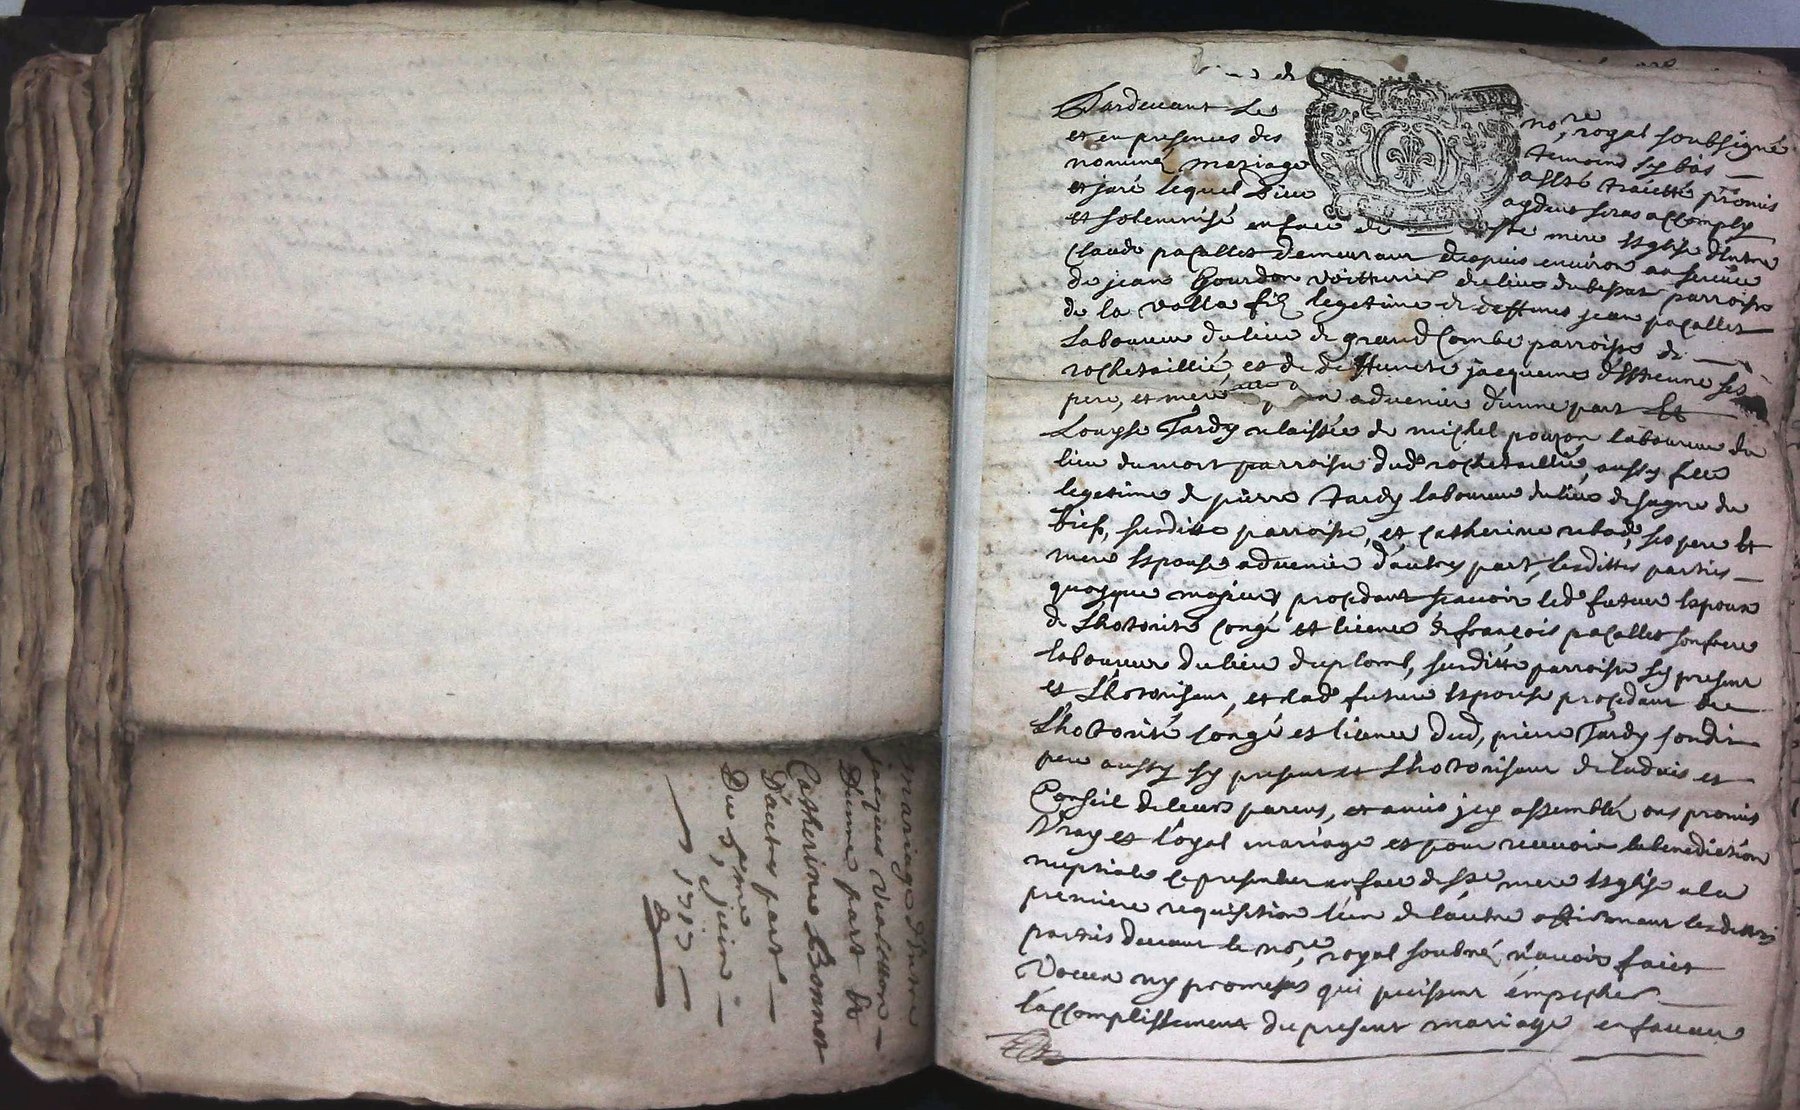 mariage d'Entre
jacques Vialetton
D'unne part Et
Catherine Bonnet
D'autre part
Du 5eme juin
1713
Pardevant Le nore, royal soubsigné
et en presences des temoins sy bas
nommé, mariage a esté traicté promis
et juré lequel Dieu aydant seras accomply
et solemnisé en face de ste mere Esglise d'Entre
Claude pacallet demeurant depuis environ au service
de jean Gourdon voitturier du lieu du bessat parroisse
de la valla filz legetime de deffunt jean pacallet
Laboureur du lieu de grand Combe parroisse de
rochetaillié, et de deffuncte jacqueme d'Estienne ses
pere, et mere advenir d'unne part Et
Louyse Tardy relaissée de michel poujon laboureur du
lieu du mort parroisse dud rochetaillié, aussy fille
legetime de pierre Tardy laboureur du lieu de sagne du
brief, surditte parroisse, et Catherine ribad, ses pere Et
mere Espouse advenir d'autre part, lesdittes parties
quoyque majeurs procedant scavoir led futeur Espoux
de L'hotorité congé et licence de françois pacallet son frere
laboureur du lieu du plomb, surditte parroisse sy present
et L'hotorisant, et lad future Espouse procedant de
L'hotorité congé et licence dud, pierre Tardy sondit
pere aussy sy present et L'hotorisant de ladvis et
Conseil de leurs parens, et amis jcy assemblés ont promis
Vray et loyal mariage et pour recevoir la benediction
nuptiale se presenter en face de ste mere Esglise a la
premiere requisition l'un de l'autre affirmant lesdittes
parties devant le nore, royal soubné, n'avoir faict
Voeux ny promesses qui puissent empecher
l'accomplissement du present mariage en faveur